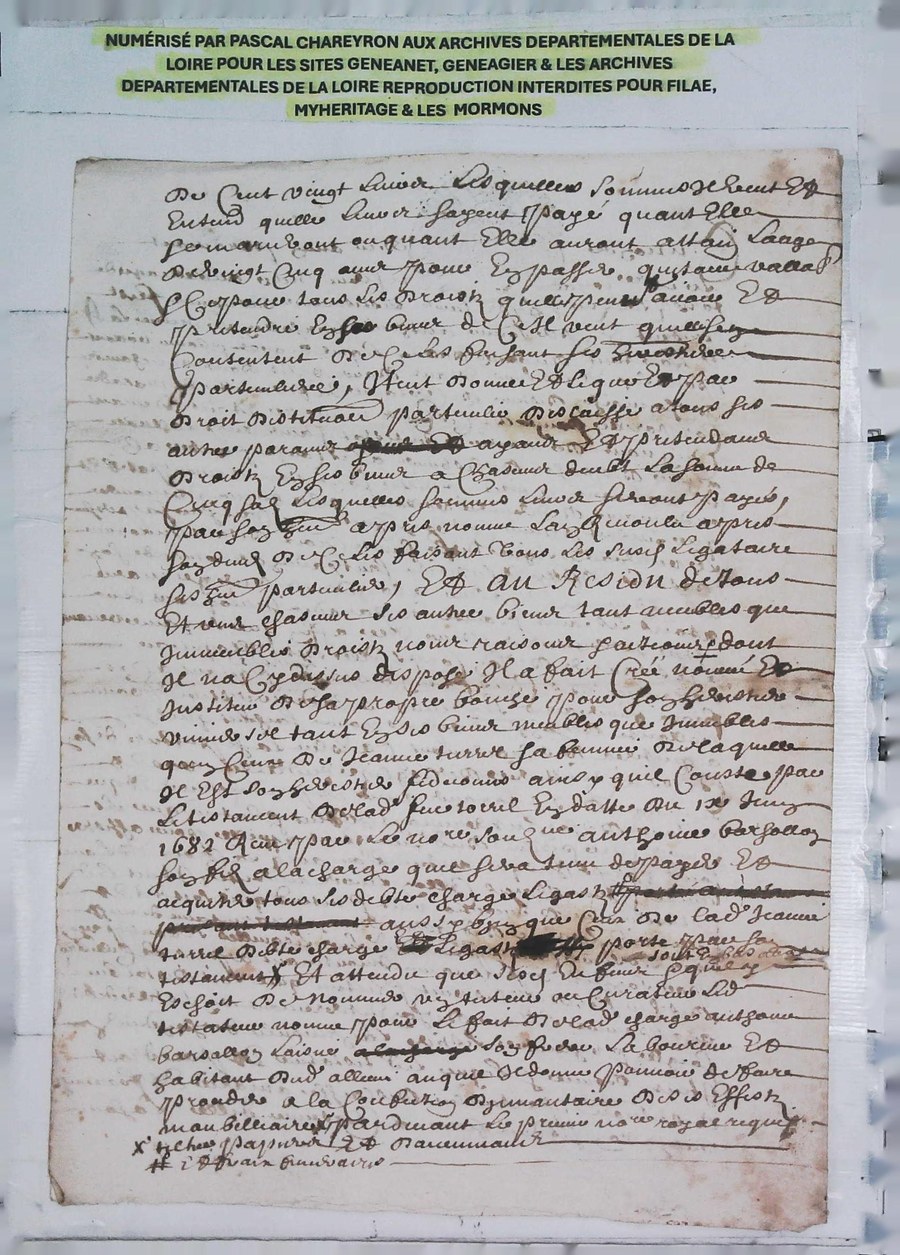 NUMÉRISÉ PAR PASCAL CHAREYRON AUX ARCHIVES DEPARTEMENTALES DE LA
LOIRE POUR LES SITES GENEANET, GENEAGIER & LES ARCHIVES
DEPARTEMENTALES DE LA LOIRE REPRODUCTION INTERDITES POUR FILAE,
MYHERITAGE & LES MORMONS
De Cent vingt Livres Lesquelles sommes Il veut Et
Entend quelle Leur soyent payé quant Elle
se mariront ou quant Elle auront attain Laage
De vingt Cinq ans pour En passer quitance vallable
Et pour tous Les Droistz quelles peuvent avoir Et
pretendre En ses biens
Contentent
particulieres, Item Donne Et Legue Et par
Droit Distitution particulie Delaisse a tous ses
autre parans ayans Et pretendans
Droistz En ses biens a Chascuns deubt La somme de
Cinq solz Lesquelles sommes Leur seront payés,
par son apres nomme apres
son deces Les faisant tous Les susd Legataire
ses particulier, Et au Residu de tous
Et uns chascuns ses autre biens tant meubles que
Immeubles Droistz noms raisons et actions dont
Il na Cy dessus dispose Il a fait Créé nommé Et
Institue De sa propre bouche pour son heritier
universel tant En ses biens meubles que Immeubles
quen Ceux De Jeanne turrel sa femme De laquelle
Il Est son heritier fiduciaire ainsy quil Conste par
Le testament De lad feue torrel En datte Du ix Juin
1682 Receu par Le nore soubzne anthoine barsallon
son filz a la charge que sera tenu de payer Et
acquiter tous ses debte charge Legastz
aussy bien que Ceux De lad Jeanne
turrel Debte charge Legastz porte par son
testament Et attendu que
Echoit De nommer un tuteur ou Curateur Led
testateur nomme pour Le fait De lad charge anthoine
barsallon Laisné son frere Laboureur Et
habitant aud allieu auquel Il donne pouvoir de faire
proceder a la Confection Dinvantaire De ses Effestz
mobiliaire pardevant Le premier nore royal requis
tiltres papiers Et Documans